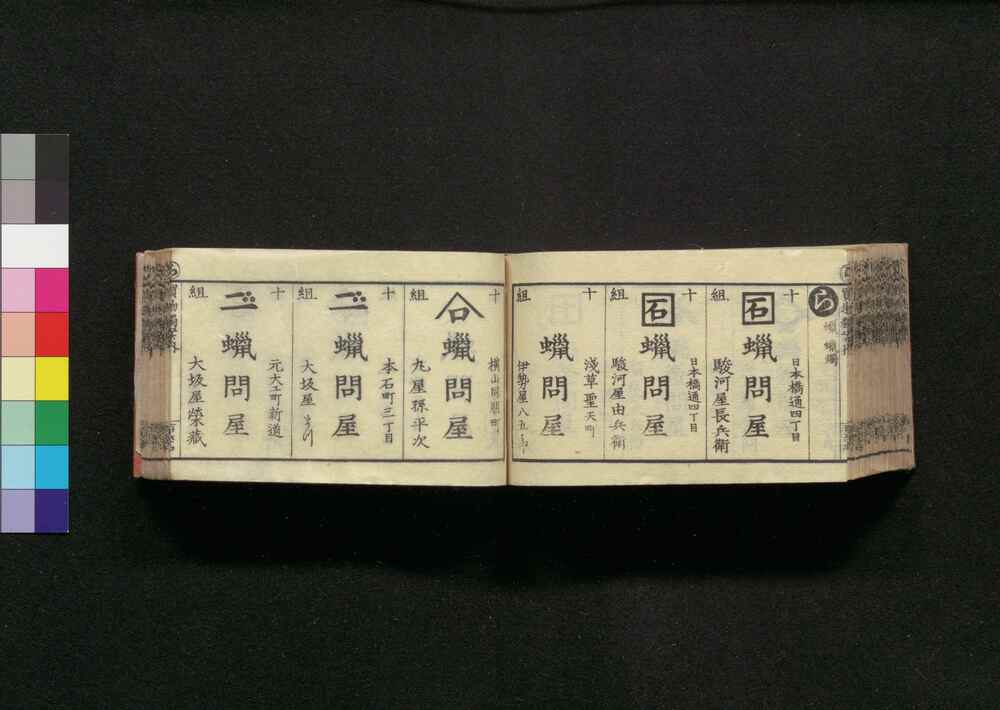 ろ
蠟 蠟燭
十
日本橋通四丁目
石 蠟問屋
組
駿河屋長兵衛
十
日本橋通四丁目
石 蠟問屋
組
駿河屋由兵衛
十
淺草聖天町
蠟問屋
組
伊勢屋八五郎
十
横山同朋町
蠟問屋
組
丸屋孫平次
十
本石町三丁目
蠟問屋
組
大坂屋
十
元大工町新道
蠟問屋
組
大坂屋榮藏